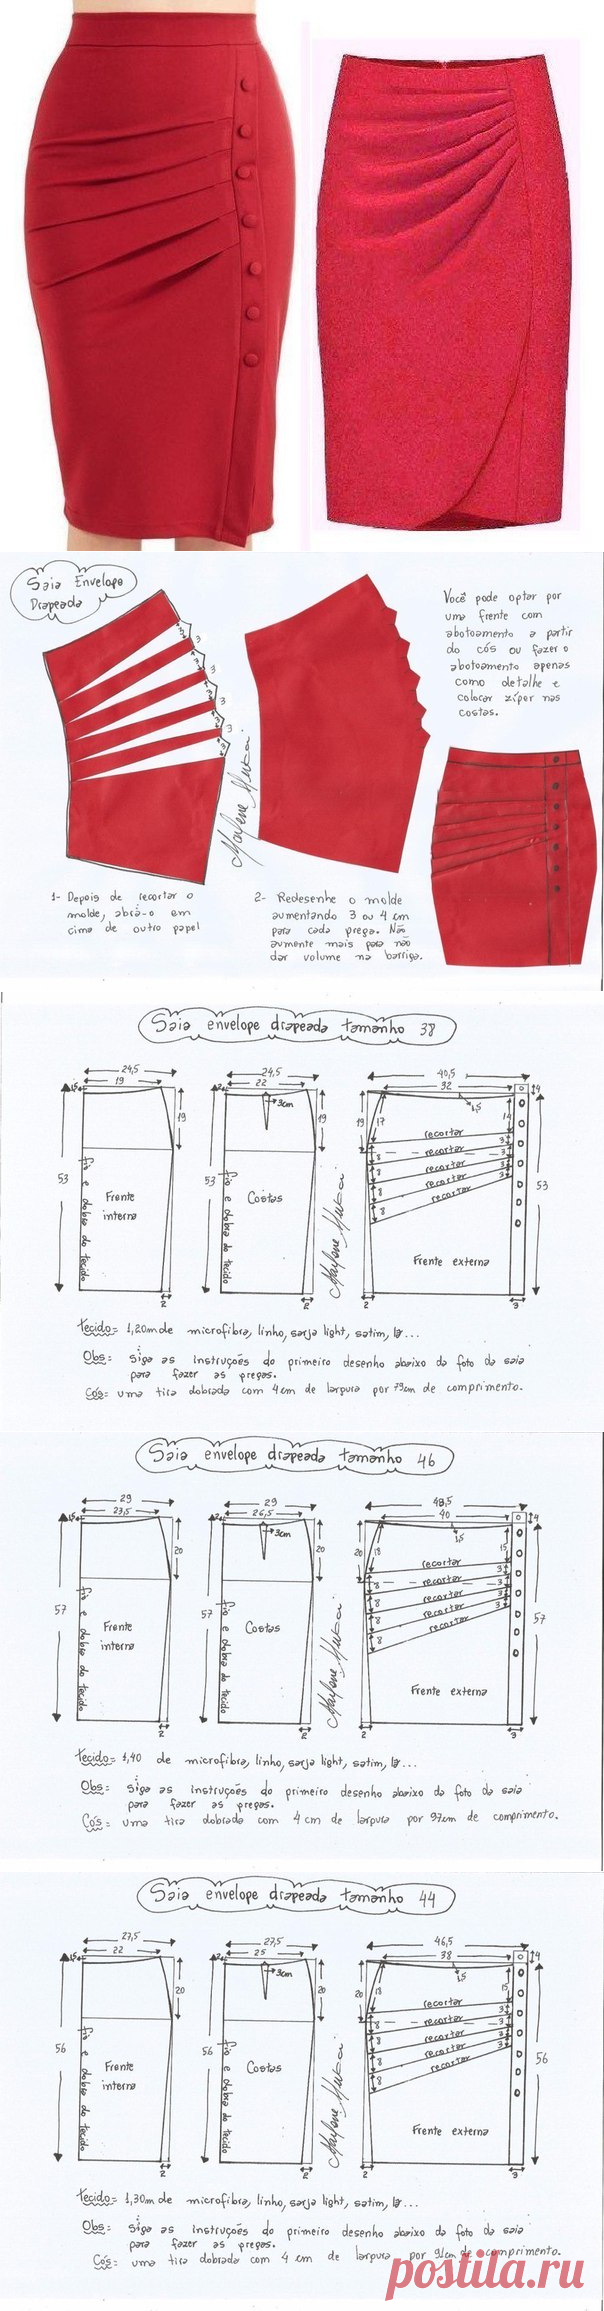 Saia Envelope
Drapeada
3
3
3
3
3
Marlene Mukai
Você pode optar por
uma frente com
abotoamento a partir
do cós ou fazer o
abotoamento apenas
como detalhe e
colocar zíper nas
costas.
1- Depois de recortar o
molde, abra-o em
cima de outro papel
2- Redesenhe o molde
aumentando 3 ou 4 cm
para cada prega. Não
aumente mais para não
dar volume na barriga.
Saia envelope drapeada tamanho 38
24,5
19
1,5
19
53
fio e dobra do tecido
Frente
interna
2
24,5
22
2
3cm
19
53
fio e dobra do tecido
Costas
2
Marlene Mukai
40,5
32
4
19
17
1,5
14
recortar
3
recortar
3
recortar
3
recortar
3
recortar
8
8
8
8
53
Frente externa
2
3
Tecido= 1,20m de microfibra, linho, sarja light, satim, lã...
Obs: siga as instruções do primeiro desenho abaixo da foto da saia
para fazer as pregas.
Cós= uma tira dobrada com 4cm de largura por 79cm de comprimento.
Saia envelope drapeada tamanho 46
29
23,5
1,5
20
57
fio e dobra do tecido
Frente
interna
2
29
26,5
2
3cm
20
57
fio e dobra do tecido
Costas
2
Marlene Mukai
48,5
40
4
20
18
1,5
15
recortar
3
recortar
3
recortar
3
recortar
3
recortar
8
8
8
8
57
Frente externa
2
3
Tecido= 1,40 de microfibra, linho, sarja light, satim, lã...
Obs: siga as instruções do primeiro desenho abaixo da foto da saia
para fazer as pregas.
Cós: uma tira dobrada com 4 cm de largura por 97cm de comprimento.
Saia envelope drapeada tamanho 44
27,5
22
1,5
20
56
fio e dobra do tecido
Frente
interna
2
27,5
25
2
3cm
20
56
fio e dobra do tecido
Costas
2
Marlene Mukai
46,5
38
4
20
18
1,5
15
recortar
3
recortar
3
recortar
3
recortar
3
recortar
8
8
8
8
56
Frente externa
2
3
Tecido= 1,30m de microfibra, linho, sarja light, satim, lã...
Obs: siga as instruções do primeiro desenho abaixo da foto da saia
para fazer as pregas.
Cós: uma tira dobrada com 4 cm de largura por 91cm de comprimento.
postila.ru